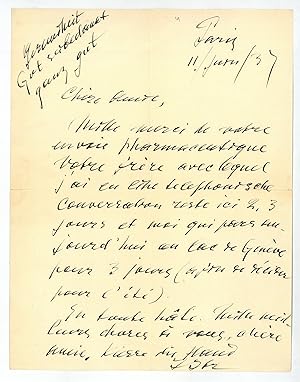 Gesundheit
ganz gut
Paris
11/Juin/37
Chère amie,
Mille merci de votre
envoie pharmaceutique
Votre frère avec lequel
j'ai eu telephonische
Conversation reste ici 2, 3
jours et moi qui pars au-
jourd'hui au lac de Genève
pour 3 jours
pour l'été).
En toute hâte. Mille meil-
leures choses à vous, chère
amie,